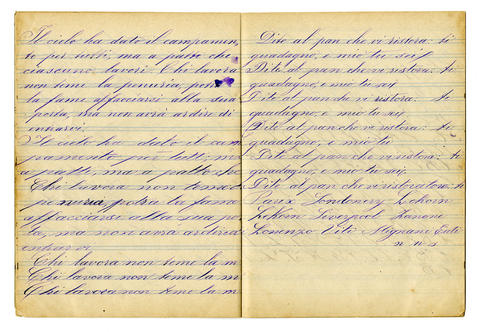 Il cielo ha dato il campamen,
to per tutti, ma a patto che
ciascuno, lavori. Chi lavora
non teme la penuria, potrà
la fame affacciarsi alla sua
porta, ma non avrà ardire di
entrarvi.
Il cielo ha dato il cam
pamento per tutti, ma
a patti, ma a patto che
Chi lavora non temes
penuria potrà la fame
affacciarse alla sua po
ta, ma non avrà ardire
entrar vi
Chi lavora non teme la m
Chi lavora non teme la m
Chi lavora non teme la m
Dite al pan che vi ristora: ti
guadagno, e mio tu sei,
Dite al pan che vi ristora: ti
guadagno, e mio tu sei,
Dite al pan che vi ristora: ti
guadagno, e mio tu sei,
Dite al pan che vi ristora: ti
guadagno, e mio tu
Dite al pan che vi ristora: ti
guadagno, e mio tu sei,
Dite al pan che vi ristora
Liverpool Zanone
Lorenzo Vito